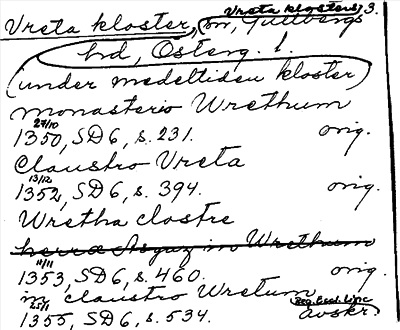 Vreta klosters 3.
Vreta kloster, sn, Gullbergs
hd, Österg. l.
(under medeltiden kloster)
monasterio Wrethum
27/10
1350, SD6, s. 231. orig.
Claustro Vreta
13/12
1352, SD6, s. 394. orig.
Wretha clostre
herra Asguz in Wrethum
11/11
1353, SD6, s. 460. orig.
in claustro Wretum Reg. Eccl. Linc
25/1
1355, SD6, s. 534. avskr.